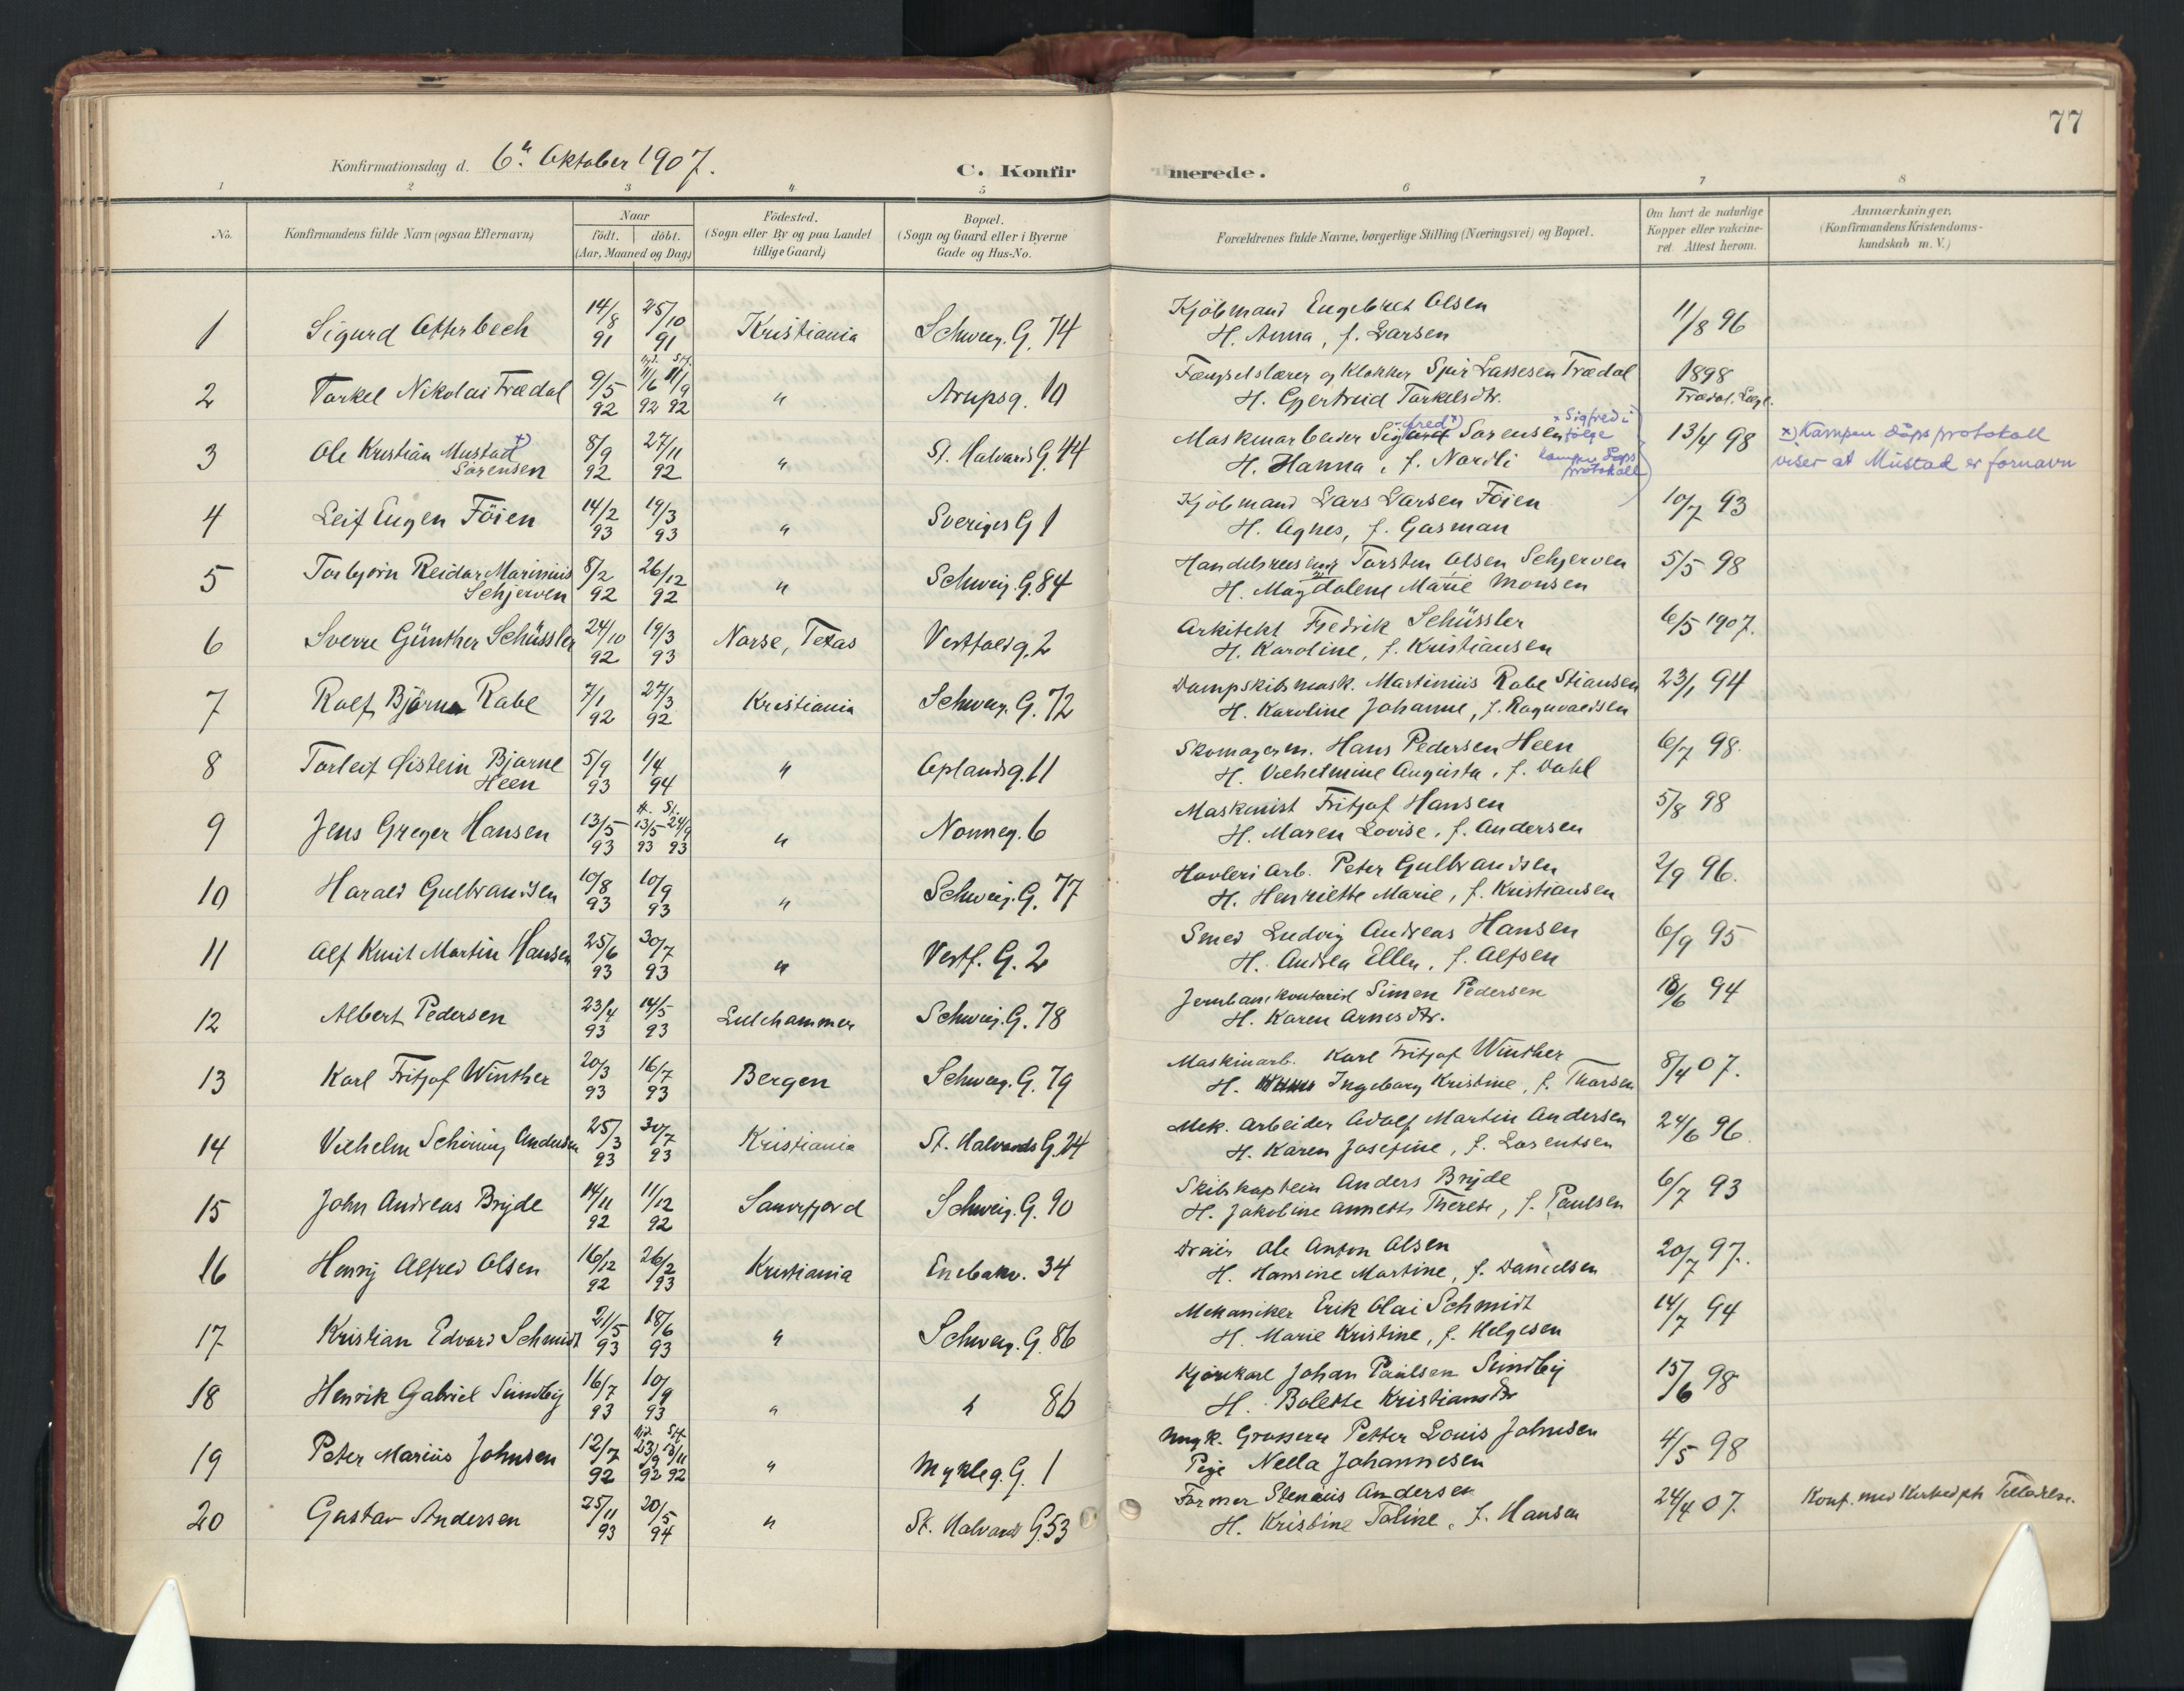 77
Konfirmationsdag d. 6te Oktober 1907.
C. Konfir
merede.
1 2 3 4 5 6 7 8
No.
Konfirmandens fulde Navn (ogsaa Efternavn)
Naar
födt. döbt.
(Aar, Maaned og Dag)
Födested.
(Sogn eller By og paa Landet
tillige Gaard)
Bopæl.
(Sogn og Gaard eller i Byerne
Gade og Hus-No.
Forældrenes fulde Navne, borgerlige Stilling (Næringsvei) og Bopæl.
Om havt de naturlige
Kopper eller vakcine-
ret. Attest herom.
Anmærkninger,
(Konfirmandens Kristendoms-
kundskab m. V.)
1 Sigurd Otterbech 14/8 91 25/10 91 Kristiania Schweig. G. 74 Kjöbmand Engebret Olsen 11/8 96
H. Anna, f. Larsen
2 Tarkel Nikolai Trædal 9/5 92 11/6 92 11/9 92 " Arupsg. 10 Fængselslærer og Klokker Sjur Lassesen Trædal 1898
H. Gjertrud Tarkelsdtr. Trædal. Læge.
3 Ole Kristian Mustad x) 8/9 92 27/11 92 " St. Halvards G. 44 Maskinarbeider Sigurd fred x) Sørensen 13/4 98 x) Kampen dåpsprotokoll
Sörensen H. Hanna, f. Nordli viser at Mustad er fornavn
x Sigfred i
følge
Kampen Dåps
protokoll
4 Leif Eugen Föien 14/2 93 19/3 93 " Sveriges G 1 Kjöbmand Lars Larsen Föien 10/7 93
H. Agnes, f. Gasman
5 Torbjörn Reidar Marinius 8/2 92 26/12 92 " Schweig. G. 84 Handelsreisende Torsten Olsen Schjerven 5/5 98
Schjerven H. Magdalene Marie Monsen
6 Sverre Günther Schüssler 24/10 92 19/3 93 Norse, Texas Vestfoldg. 2 Arkitekt Fredrik Schüssler 6/5 1907.
H. Karoline, f. Kristiansen
7 Rolf Bjarne Rabe 7/1 92 27/3 92 Kristiania Schweig. G. 72 Dampskibsmask. Martinius Rabe Stiansen 23/1 94
H. Karoline Johanne, f. Ragnvaldsen
8 Torleif Øistein Bjarne 5/9 93 1/4 94 " Oplandsg. 11 Skomagerm. Hans Pedersen Heen 6/7 98.
Heen H. Vilhelmine Augusta, f. Dahl
9 Jens Greger Hansen 13/5 93 13/5 93 24/9 93 " Nonneg. 6 Maskinist Fritjof Hansen 5/8 98
H. Maren Lovise, f. Andersen
10 Harald Gulbrandsen 10/8 93 10/9 93 " Schweig. G. 77 Høvleri Arb. Peter Gulbrandsen 2/9 96.
H. Henriette Marie, f. Kristiansen
11 Alf Knut Martin Hansen 25/6 93 30/7 93 " Vestf. G. 2 Smed Ludvig Andreas Hansen 6/9 95
H. Andrea Ellen, f. Alfsen
12 Albert Pedersen 23/4 93 14/5 93 Lillehammer Schweig. G. 78 Jernbanekontorist Simen Pedersen 94
H. Karen Arnesdtr.
13 Karl Fritjof Winther 20/3 93 16/7 93 Bergen Schweig. G. 79 Maskinarb. Karl Fritjof Winther 8/4 07.
H. Ingeborg Kristine, f. Thorsen
14 Vilhelm Schöning Andersen 25/3 93 30/7 93 Kristiania St. Halvards G. 24 Mek. Arbeider Adolf Martin Andersen 24/6 96
H. Karen Josefine, f. Lorentsen
15 John Andreas Bryde 14/11 92 11/12 92 Sandefjord Schweig. G. 90 Skibskaptein Anders Bryde 6/7 93
H. Jakobine Annette Therese, f. Paulsen
16 Henry Alfred Olsen 16/12 92 26/2 93 Kristiania Enebakv. 34 Dreier Ole Anton Olsen 20/7 97.
H. Hansine Martine, f. Danielsen
17 Kristian Edvard Schmidt 21/5 93 18/6 93 " Schweig. G. 86 Mekaniker Erik Olai Schmidt 14/7 94
H. Marie Kristine, f. Helgesen
18 Henrik Gabriel Sundby 16/7 93 10/9 93 " " 86 Kjörekarl Johan Paulsen Sundby 15/6 98
H. Bolette Kristiansdtr
19 Peter Marius Johnsen 12/7 92 23/9 92 13/11 92 " Mykleg. G. 1 Ungk. Grosserer Petter Louis Johnsen 4/5 98
Pige Nella Johannesen
20 Gustav Andersen 25/11 93 20/5 94 " St. Halvards G. 53 Former Stenius Andersen 24/4 07. Konf. med Kirkedpts Tilladelse.
H. Kristine Toline, f. Hansen